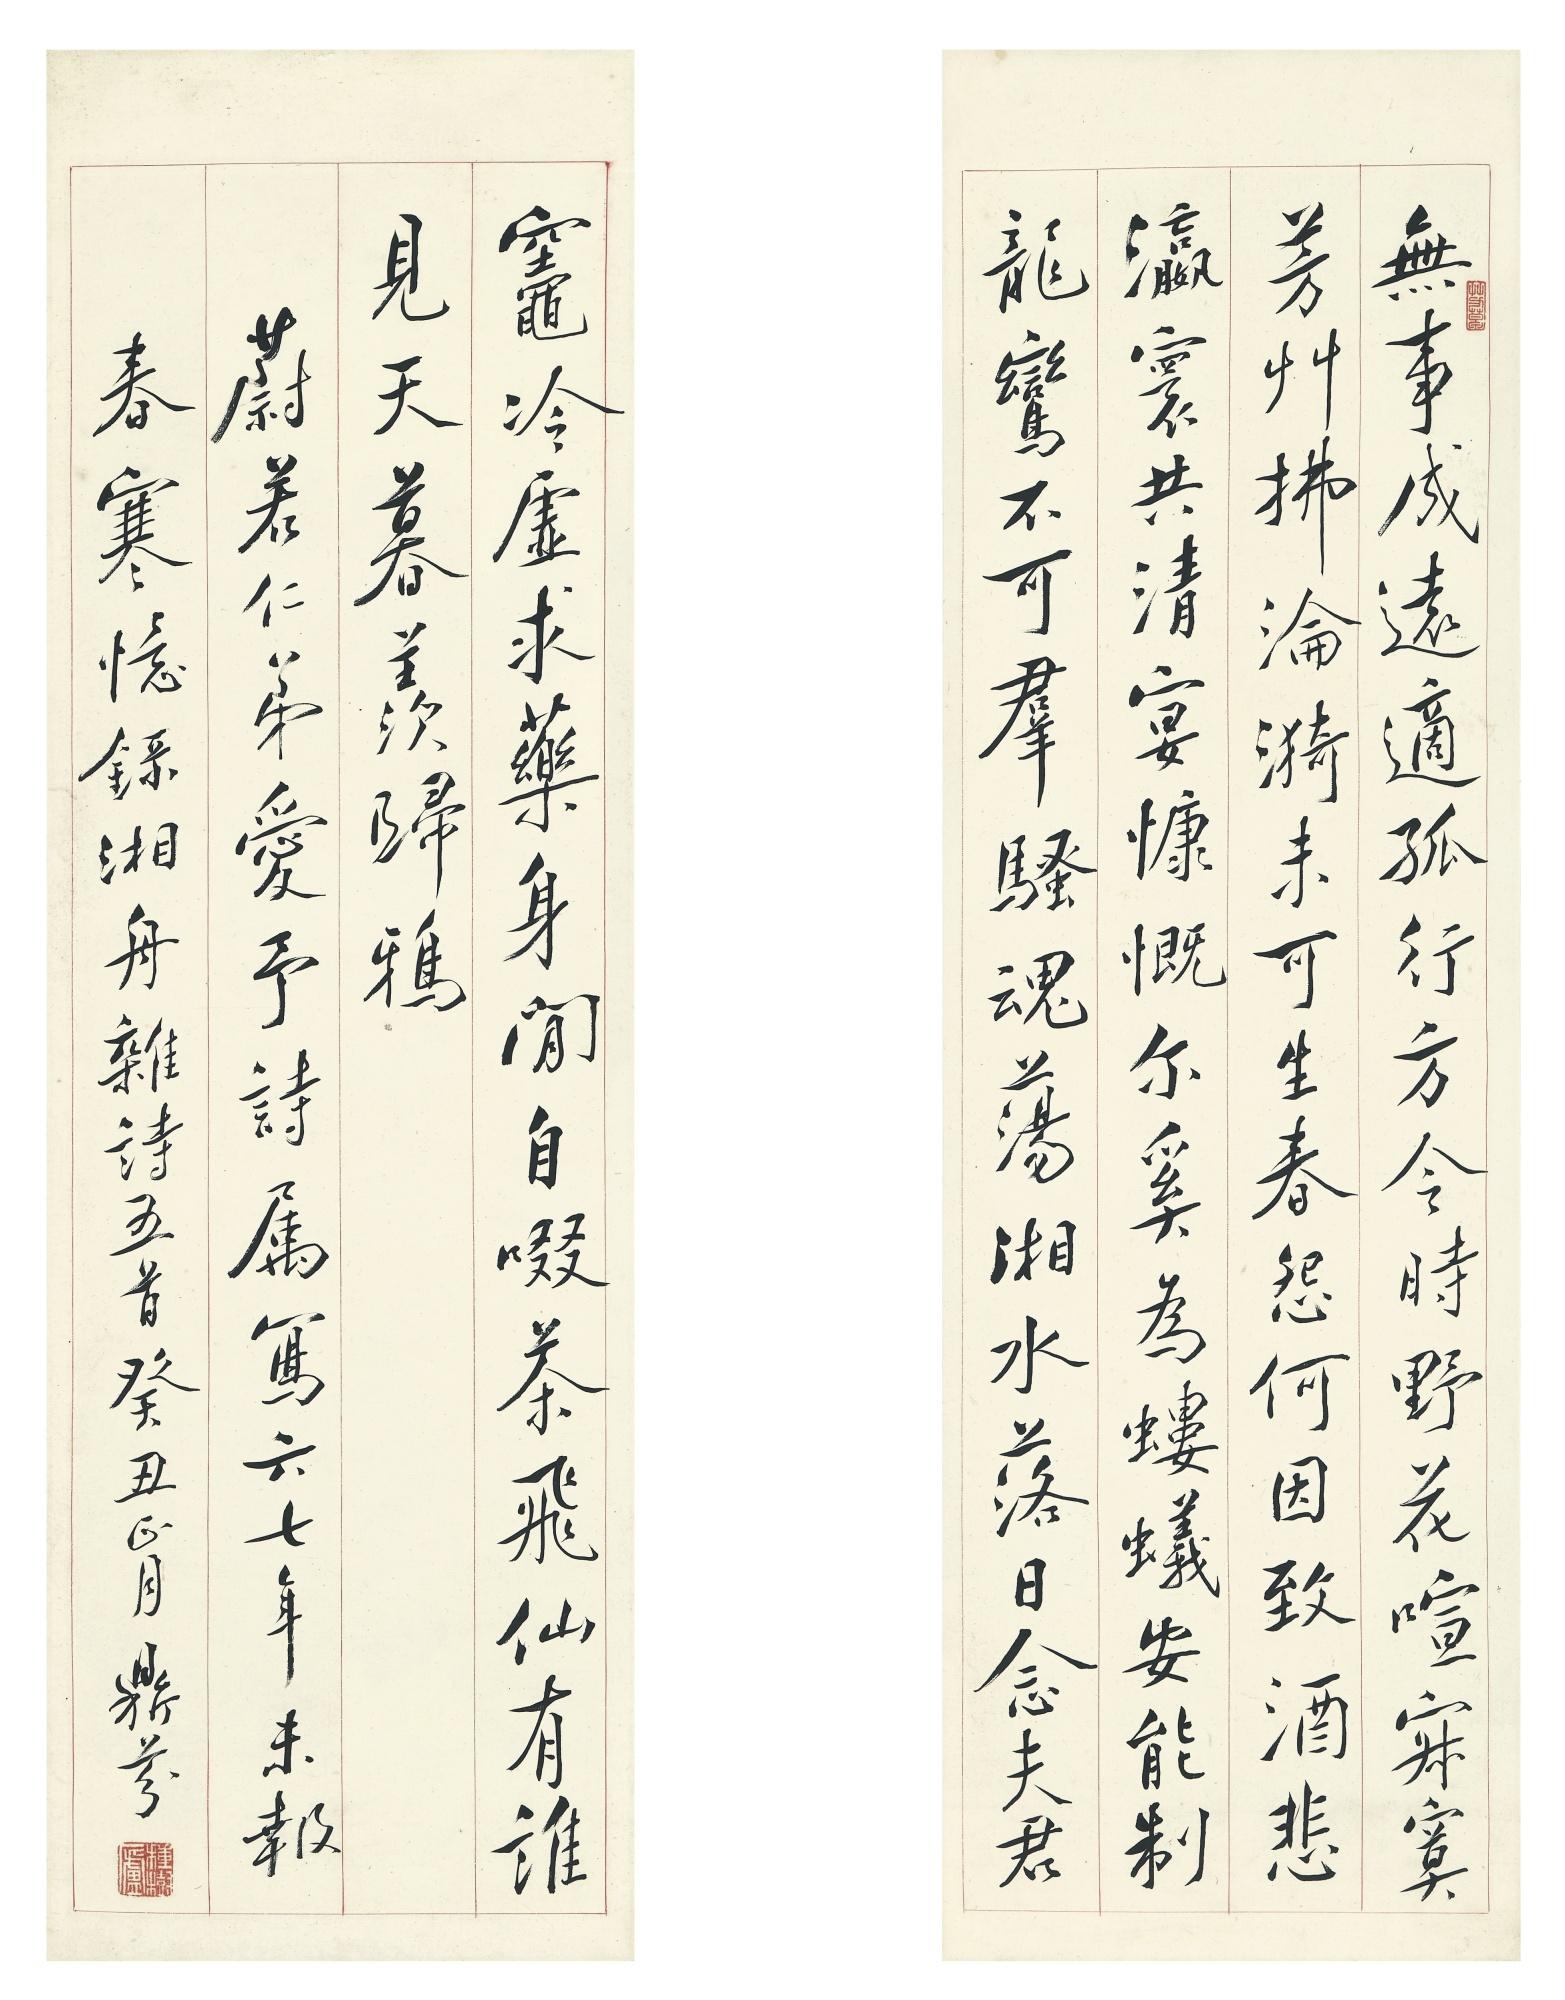 無事成遠適孤行方令時野花喧寂寞
芳艸拂淪漪未可生春怨何因致酒悲
瀛寰共清宴慷慨尔奚為螻蟻安能制
龍鸞不可羣騷魂蕩湘水落日念夫君
竈冷虛求藥身閒自啜茶飛仙有誰
見天暮羨歸鴉
蔚若仁弟愛予詩屬寫六七年未報
春寒憶錄湘舟雜詩五首癸丑正月鼎芬